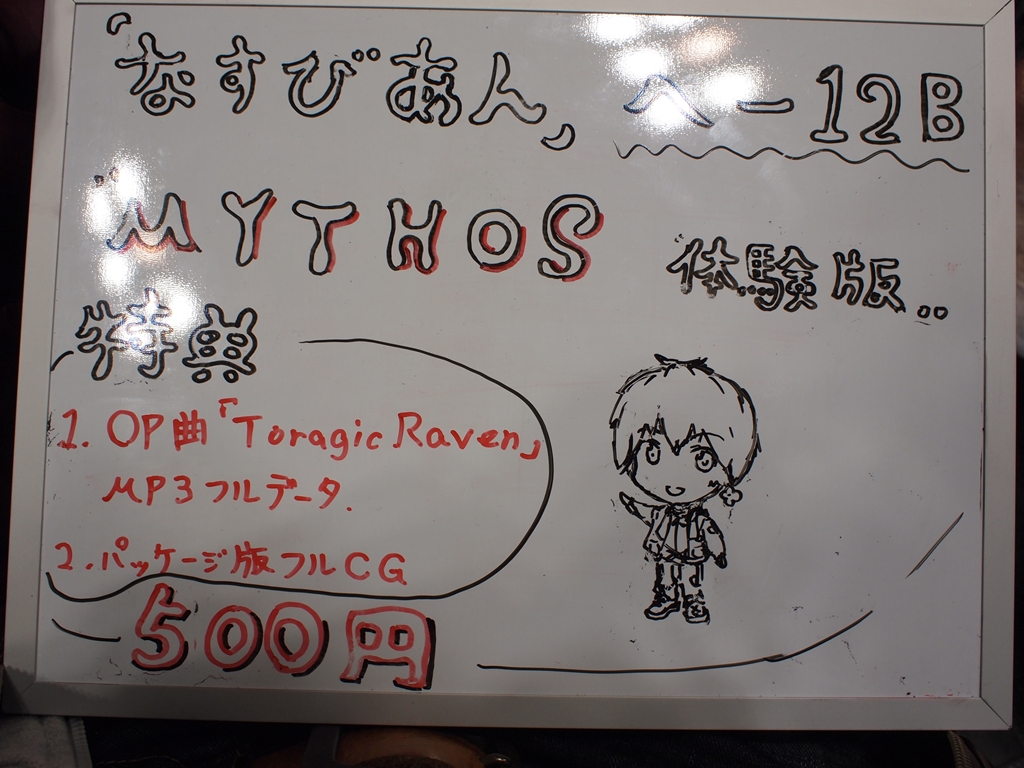 「なすびあん」 へ-12B
"MYTHOS 体験版..
特典
1. OP曲「Toragic Raven」
MP3フルデータ.
2. パッケージ版フルCG
500円